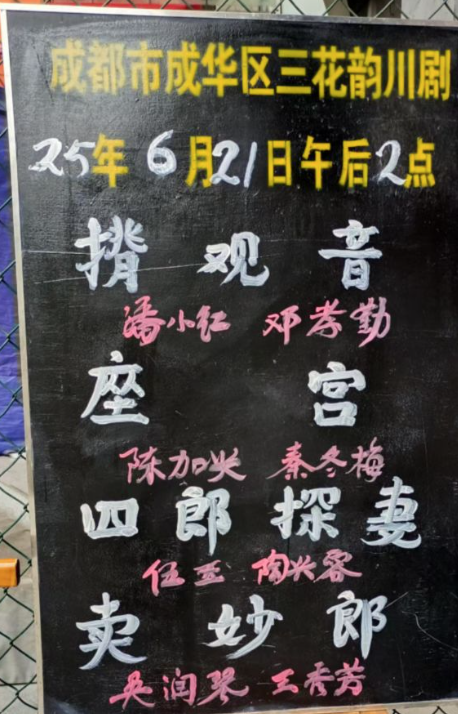 成都市成华区三花韵川剧
25年6月21日午后2点
揹观音
潘小红 邓孝勤
座宫
陈加兴 秦冬梅
四郎探妻
伍三 陶兴容
卖妙郎
吴润琴 王香芳